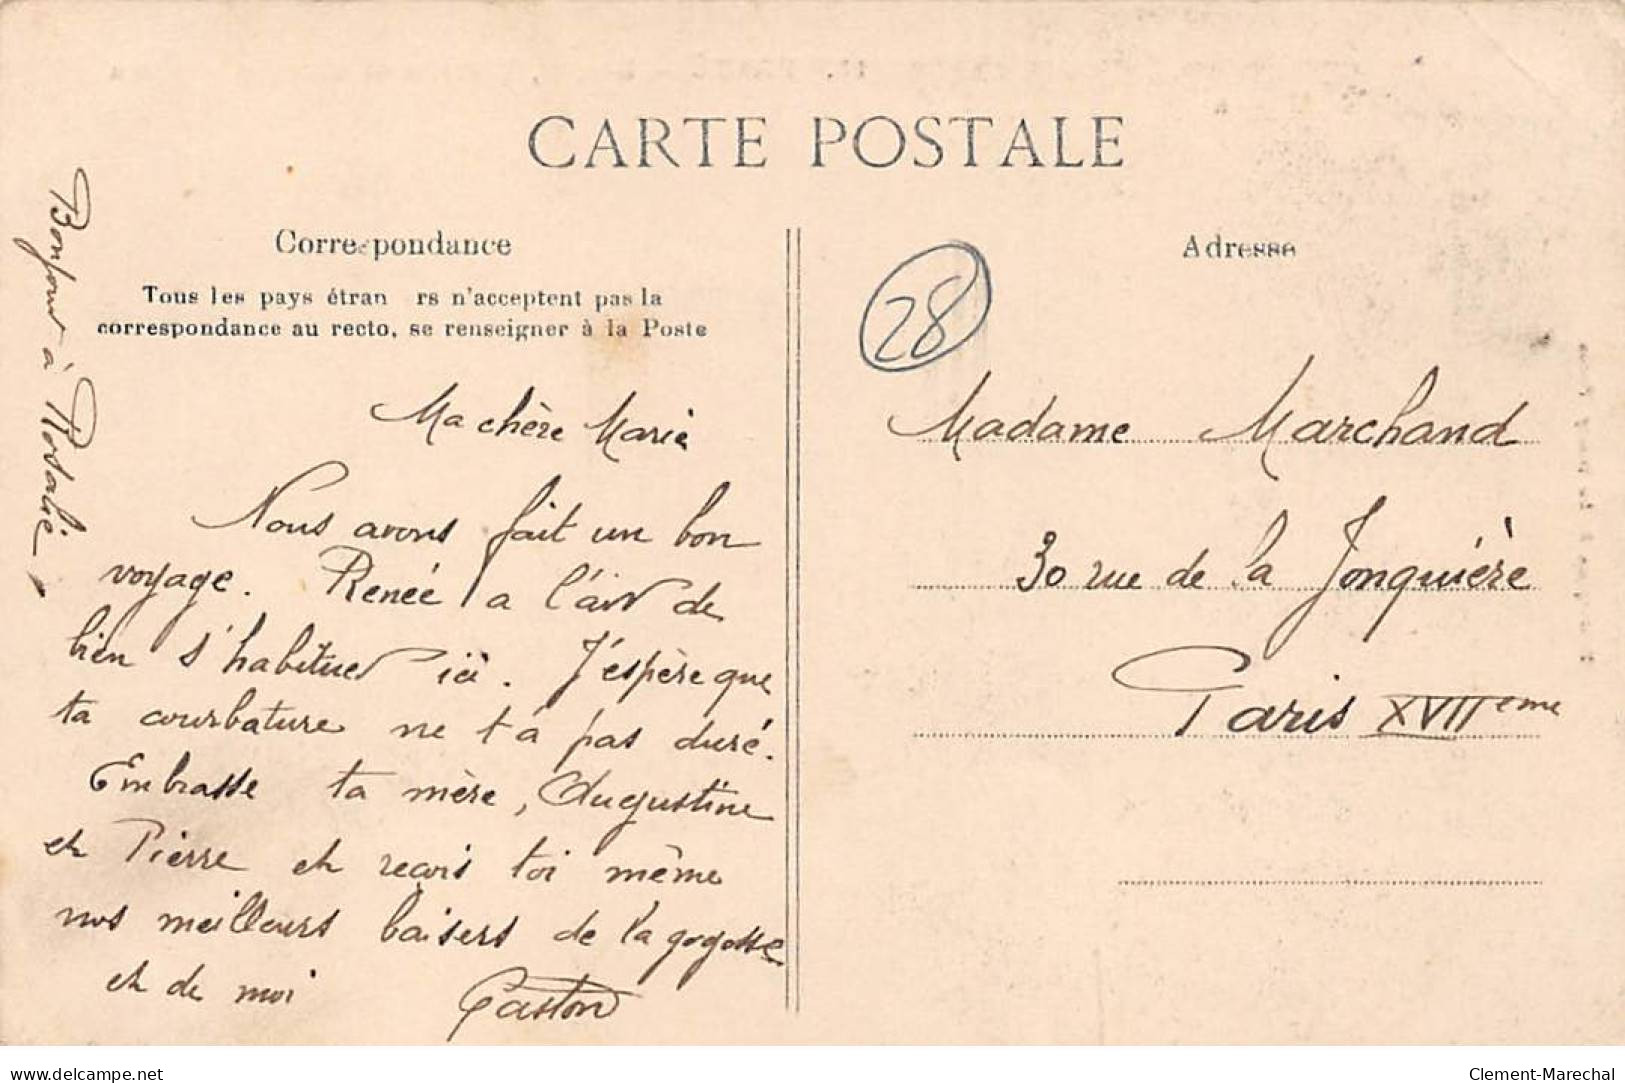 CARTE POSTALE
Correspondance
Tous les pays étran rs n'acceptent pas la
correspondance au recto, se renseigner à la Poste
Bonjour à Rosalie
Ma chère Marie
Nous avons fait un bon
voyage. Renée a l'air de
bien s'habituer ici. J'espère que
ta courbature ne t'a pas duré.
Embrasse ta mère, Augustine
et Pierre et reçois toi même
nos meilleurs baisers de la gogosse
et de moi
Gaston
Adresse
28
Madame Marchand
30 rue de la Jonquière
Paris XVIIeme
www.delcampe.net
Clement-Marechal